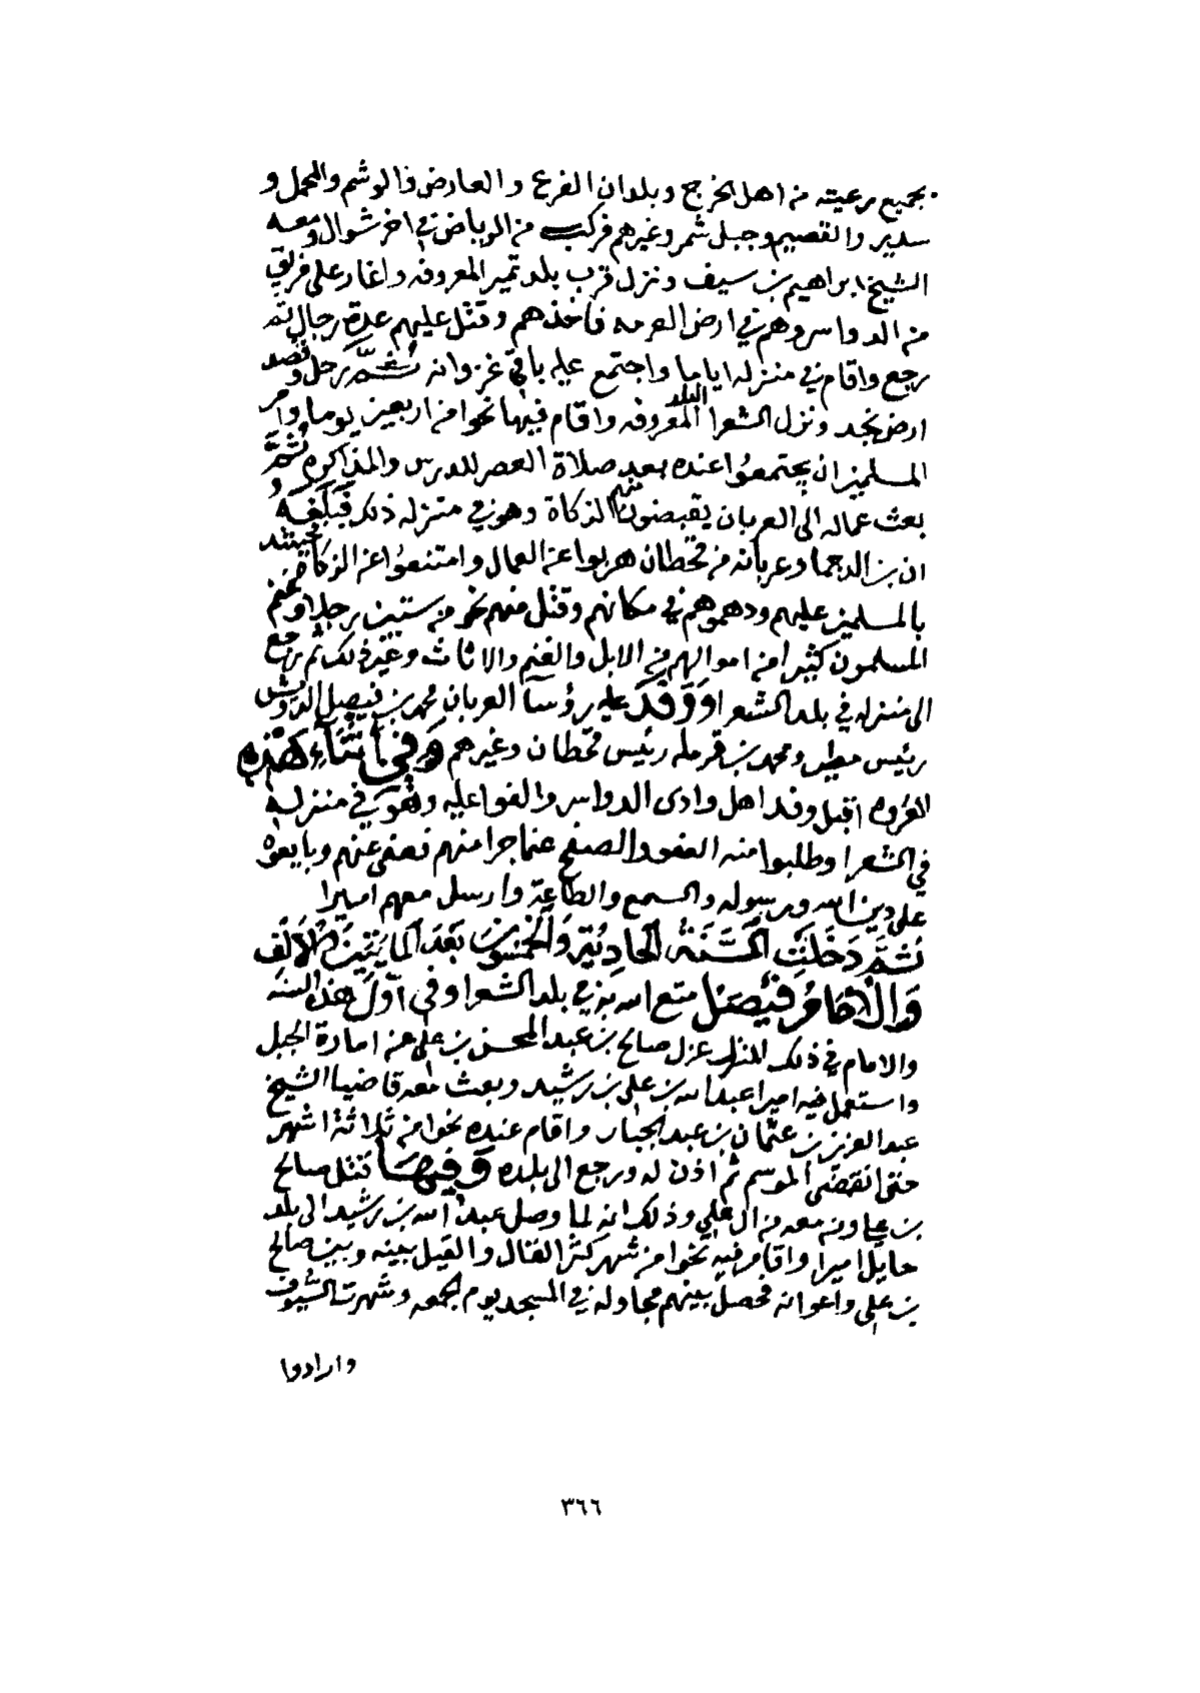 بجميع رعيته من اهل الخرج وبلدان الفرع والعارض والوشم والمحمل و
سدير والقصيم وجبل شمر وغيرهم فركب من الرياض في اخر شوال ومعه
الشيخ ابراهيم بن سيف ونزل قرب بلد تمير المعروفه واغار على فريق
من الدواسر وهم في ارض العرمه فاخذهم وقتل عليهم عدة رجال ثم
رجع واقام في منزله اياما واجتمع عليه باقي غزوانه ثُمَّ رحل وقصد
ارض نجد ونزل الشعرا البلد المعروفه واقام فيها نحوا من اربعين يوما وامر
المسلمين ان يجتمعوا عنده بعد صلاة العصر للدرس والمذاكره ثُمَّ
بعث عماله الى العربان يقبضون منهم الزكاة وهو في منزله ذلك فَبَلَغَهُ
ان بن الدجما وعربانه من قحطان هربوا عن العمال وامتنعوا عن الزكاة
بالمسلمين عليهم ودهموهم في مكانهم وقتل منهم نحو من ستين رجلا وغنم
المسلمون كثيرا من اموالهم من الابل والغنم والاثاث وغير ذلك ثم رجع
الى منزله في بلد الشعرا وَوَفَدَ عليه رؤسآ العربان محمد بن فيصل الدويش
رئيس مطير ومحمد بن قرمله رئيس قحطان وغيرهم وَفي أثْنَآءِ هَذِهِ
الغزوه اقبل وفد اهل وادى الدواسر والفوا عليه وهُوَ في منزله
في الشعرا وطلبوا منه العفو والصفح عما جرا منهم فعفى عنهم وبايعوه
على دين الله ورسوله والسمع والطاعة وارسل معهم اميرا
ثُمَّ دَخَلَتِ السَّنَةُ الحادِيَة وَالخمْسُونَ بَعْدَ المائتين وَالأَلْفِ
وَالإِمَامُ فَيْصَل متع الله به في بلد الشعرا وفي أوّل هذه السنه
والامام في ذلك المنزل عزل صالح بن عبد المحسن بن علي عن امارة الجبل
واستعمل فيه اميرا عبد الله بن علي بن رشيد وبعث معه قاضيا الشيخ
عبد العزيز بن عثمان بن عبد الجبار واقام عنده نحوا من ثلاثة اشهر
حتى انقضى الموسم ثم اذن له ورجع الى بلده وَفِيهَا قتل صالح
بن علي ومن معه من ال علي وذلك انه لما وصل عبد الله بن رشيد الى بلد
حايل اميرا واقام فيه نحوا من شهر كثر القال والقيل بينه وبين صالح
بن علي واعوانه فحصل بينهم مجاوله في المسجد يوم الجمعه وشهرت السيوف
وارادوا
٣٦٦